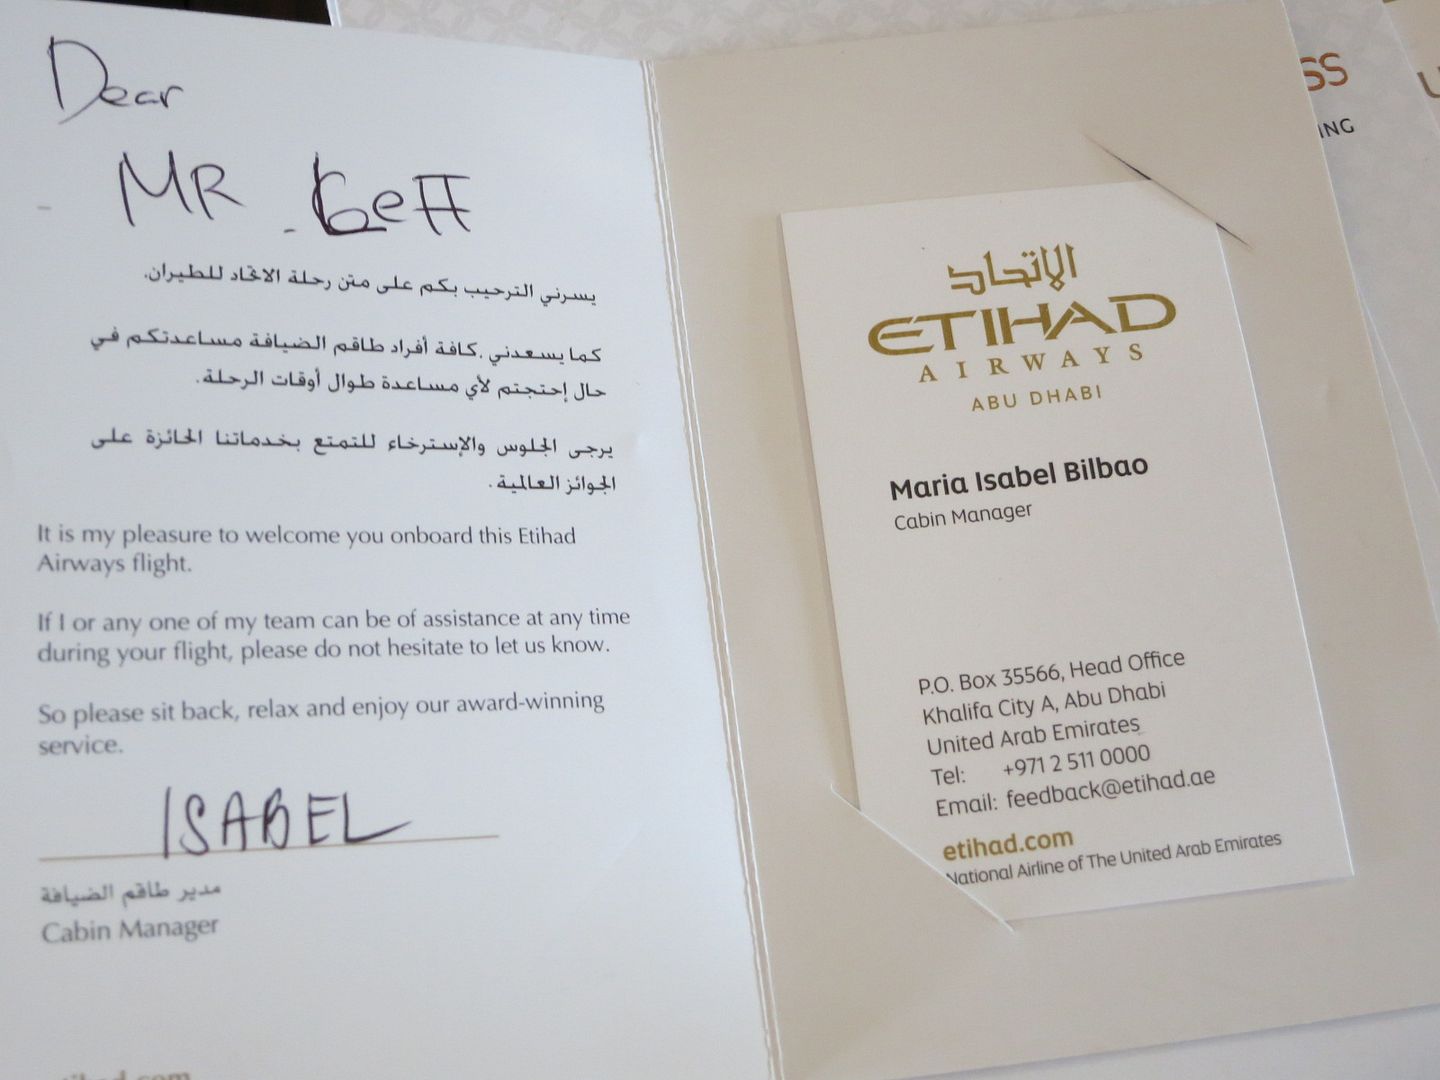 Dear
MR
يسرني الترحيب بكم على متن رحلة الاتحاد للطيران.
كما يسعدني .كافة أفراد طاقم الضيافة مساعدتكم في
حال إحتجتم لأي مساعدة طوال أوقات الرحلة.
يرجى الجلوس والإسترخاء للتمتع بخدماتنا الحائزة على
الجوائز العالمية.
It is my pleasure to welcome you onboard this Etihad
Airways flight.
If I or any one of my team can be of assistance at any time
during your flight, please do not hesitate to let us know.
So please sit back, relax and enjoy our award-winning
service.
ISABEL
مدير طاقم الضيافة
Cabin Manager
الاتحاد
ETIHAD
AIRWAYS
ABU DHABI
Maria Isabel Bilbao
Cabin Manager
P.O. Box 35566, Head Office
Khalifa City A, Abu Dhabi
United Arab Emirates
Tel: +971 2 511 0000
Email: feedback@etihad.ae
etihad.com
National Airline of The United Arab Emirates
SS
ING